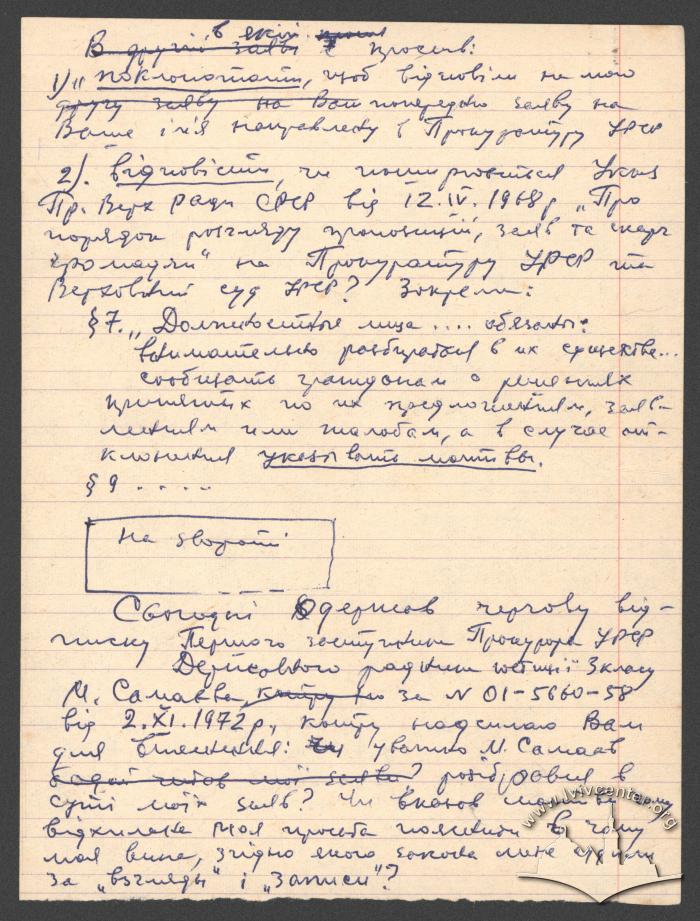 ~~В другій заяві~~ в якій я просив:
1) „поклопотати, щоб відповіли на мою
~~другу заяву на Ваш~~ попередню заяву на
Ваше ім'я направлену в Прокуратуру УРСР
2). Відповісти, чи поширюється Указ
Пр. Верх Ради СРСР від 12.IV.1968р „Про
порядок розгляду пропозицій, заяв та скарг
громадян“ на Прокуратуру УРСР та
Верховний суд УРСР? Зокрема:
§7. „Должностные лица .... обязаны:
внимательно разбираться в их существе...
сообщать гражданам о решениях
принятых по их предложениям, заяв-
лениям или жалобам, а в случае от-
клонения указывать мотивы.
§9 .....
На звороті
Сьогодні одержав чергову від-
писку Першого заступника Прокурора УРСР
Державного радника юстиції 3 класу
М. Самаєва, за N 01-5660-58
від 2.XI.1972р, котру надсилаю Вам
для вияснення: уважно М. Самаєв
~~читав мої заяви?~~ розібрався в
суті моїх заяв? Чи вказав мотиви чому
відхилена моя просьба пояснити в чому
моя вина, згідно якого закона мене судили
за „взгляды“ і „записи“?
www.lvivcenter.org